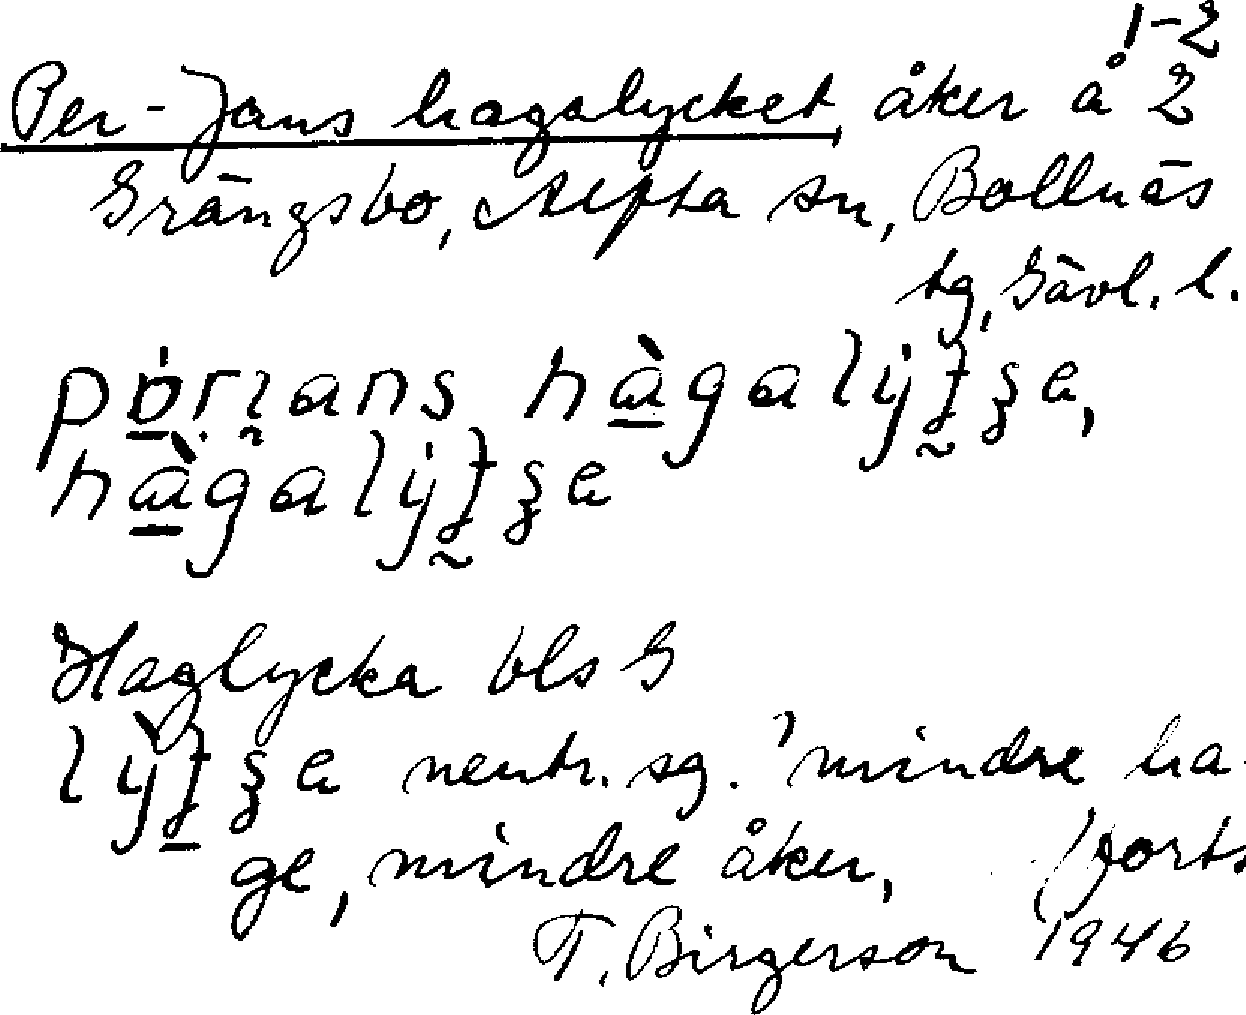 1-2
Per-Jans hagalycket, åker å 2
Grängsbo, Alfta sn, Bollnäs
tg, Gävl. l.
hàgaly
Haglycka bls G
neutr. sg. 'mindre ha-
ge, mindre åker, (forts
T. Birgerson 1946